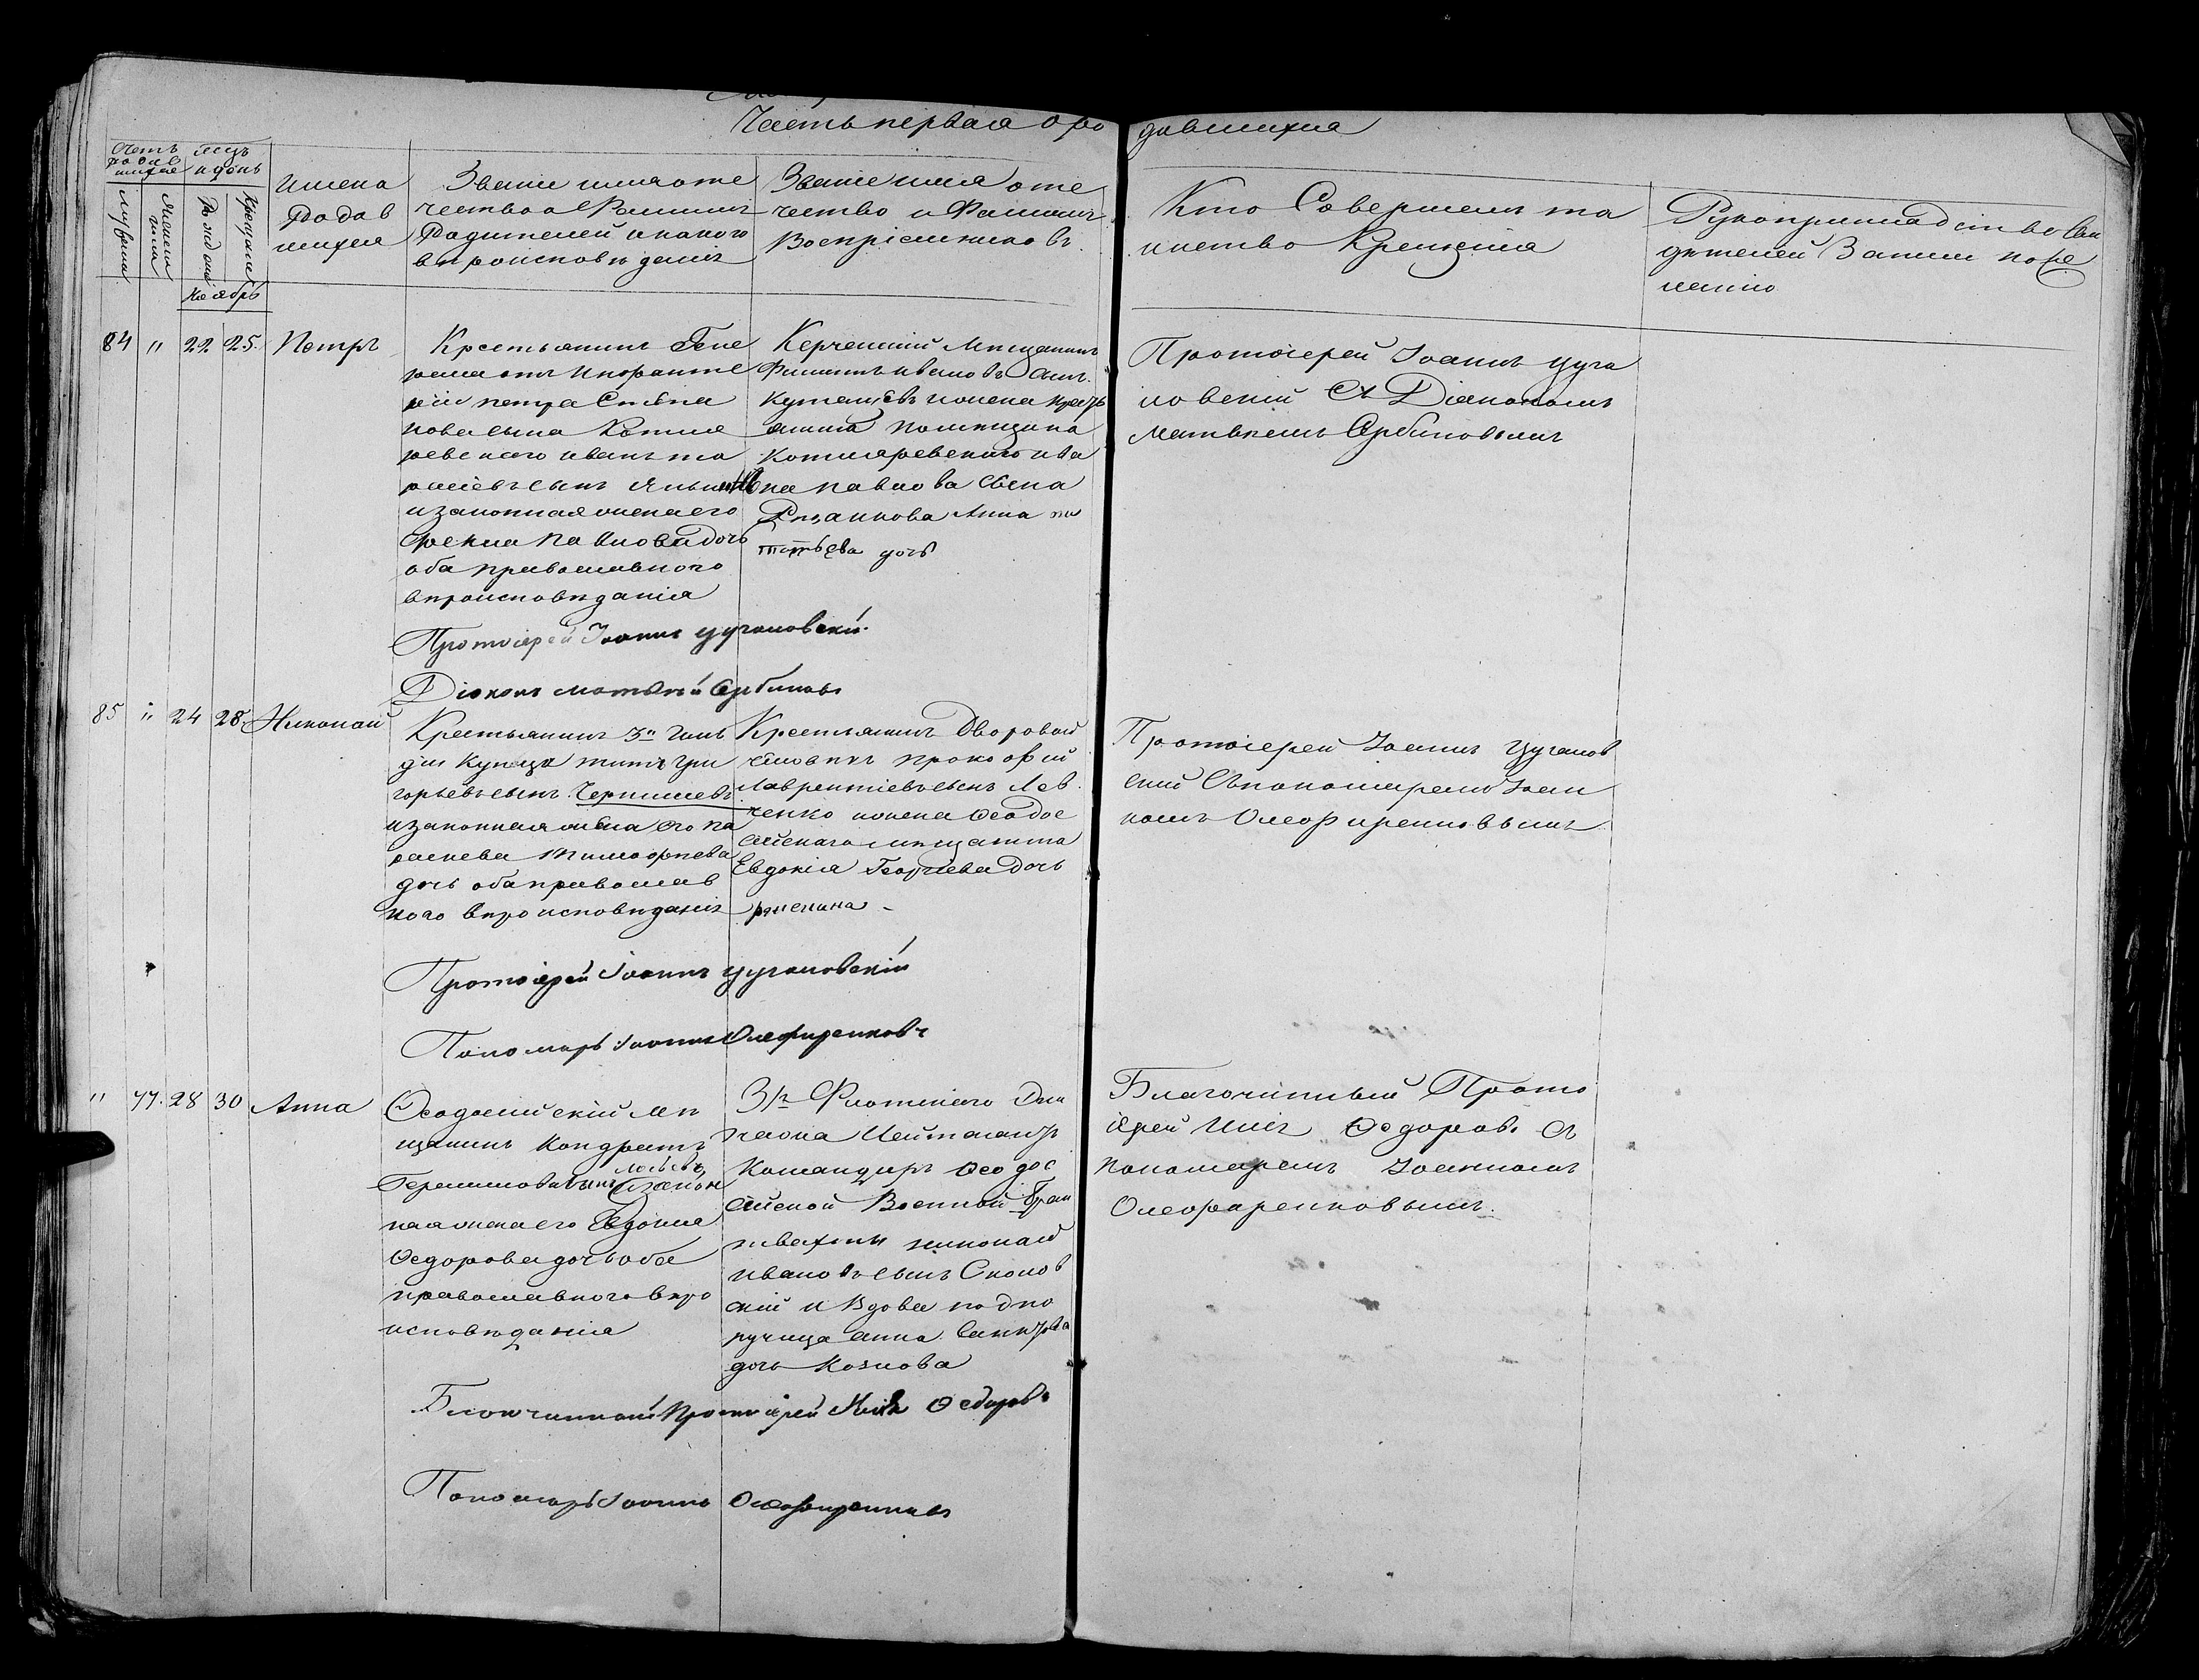 Часть первая о ро дившихся
Счетъ родив шихся
Мѣсяцъ и день
мужеска
женска
рожденія
крещенія
ноябрь
имена
родив
шихся
Званіе имя оте
чество и Фамилія
Родителей и какого
вѣроисповѣданія
Званіе имя оте
чество и Фамилія
Воспріемниковъ.
Кто Совершалъ та
инство Крещенія
Рукоприкладство Сви
дѣтелей Записи по же
ланію
84 " 22 25. Петръ
Крестьянинъ Гене
рала отъ Инфанте
ріи петра Степа
нова сына Котля
ревскаго иванъ
сынъ
и законная жена его
Павлова дочь
оба православного
вѣроисповѣданія
Керченскій Мѣщанинъ
Филиппъ ивановъ сынъ.
и жена крест
янина помѣщика
Котляревскаго ива
на павлова сына
Анна
дочь
Протоіерей Іоаннъ Цуга
новскій Съ Діакономъ
Матвѣемъ Сербиновымъ
Протоіерей Іоаннъ Цугановскій.
Діаконъ Матвѣй Сербиновъ
85 " 24 28. Николай
Крестьянинъ 3й Гиль
діи Купца титъ гри
горьевъ сынъ Чернышевъ
и законная жена его па
раскева тимофеева
дочь оба православ
ного вѣроисповѣданія
Крестьянинъ Дворовый
человѣкъ прокофій
Лаврентіевъ сынъ Лев
ченко и жена Ѳеодос
ійскаго мѣщанина
Евдокія Георгіева Дочь
Протоіерей Іоаннъ Цуганов
скій Съ пономаремъ Іоан
номъ Олефиренковымъ
Протоіерей Іоаннъ Цугановскій
Пономарь Іоаннъ Олефиренковъ
" 77. 28 30 Анна
Ѳеодосійскій мѣ
щанинъ Кондратъ
Герасимовъ сынъ и закон
ная жена его Евдокія
Ѳедорова дочь оба
православного вѣро
исповѣданія
Флотского Эки
пажа Лейтенантъ
Командиръ Ѳеодос
ійской Военной Бран
твахты николай
ивановъ сынъ
скій и Вдова подпо
ручица анна
дочь Козлова
Благочинный Прото
іерей Илія Ѳедоровъ Съ
пономаремъ Іоанномъ
Олефиренковымъ.
Благочинный Протоіерей Илія Ѳедоровъ
Пономарь Іоаннъ Олефиренковъ